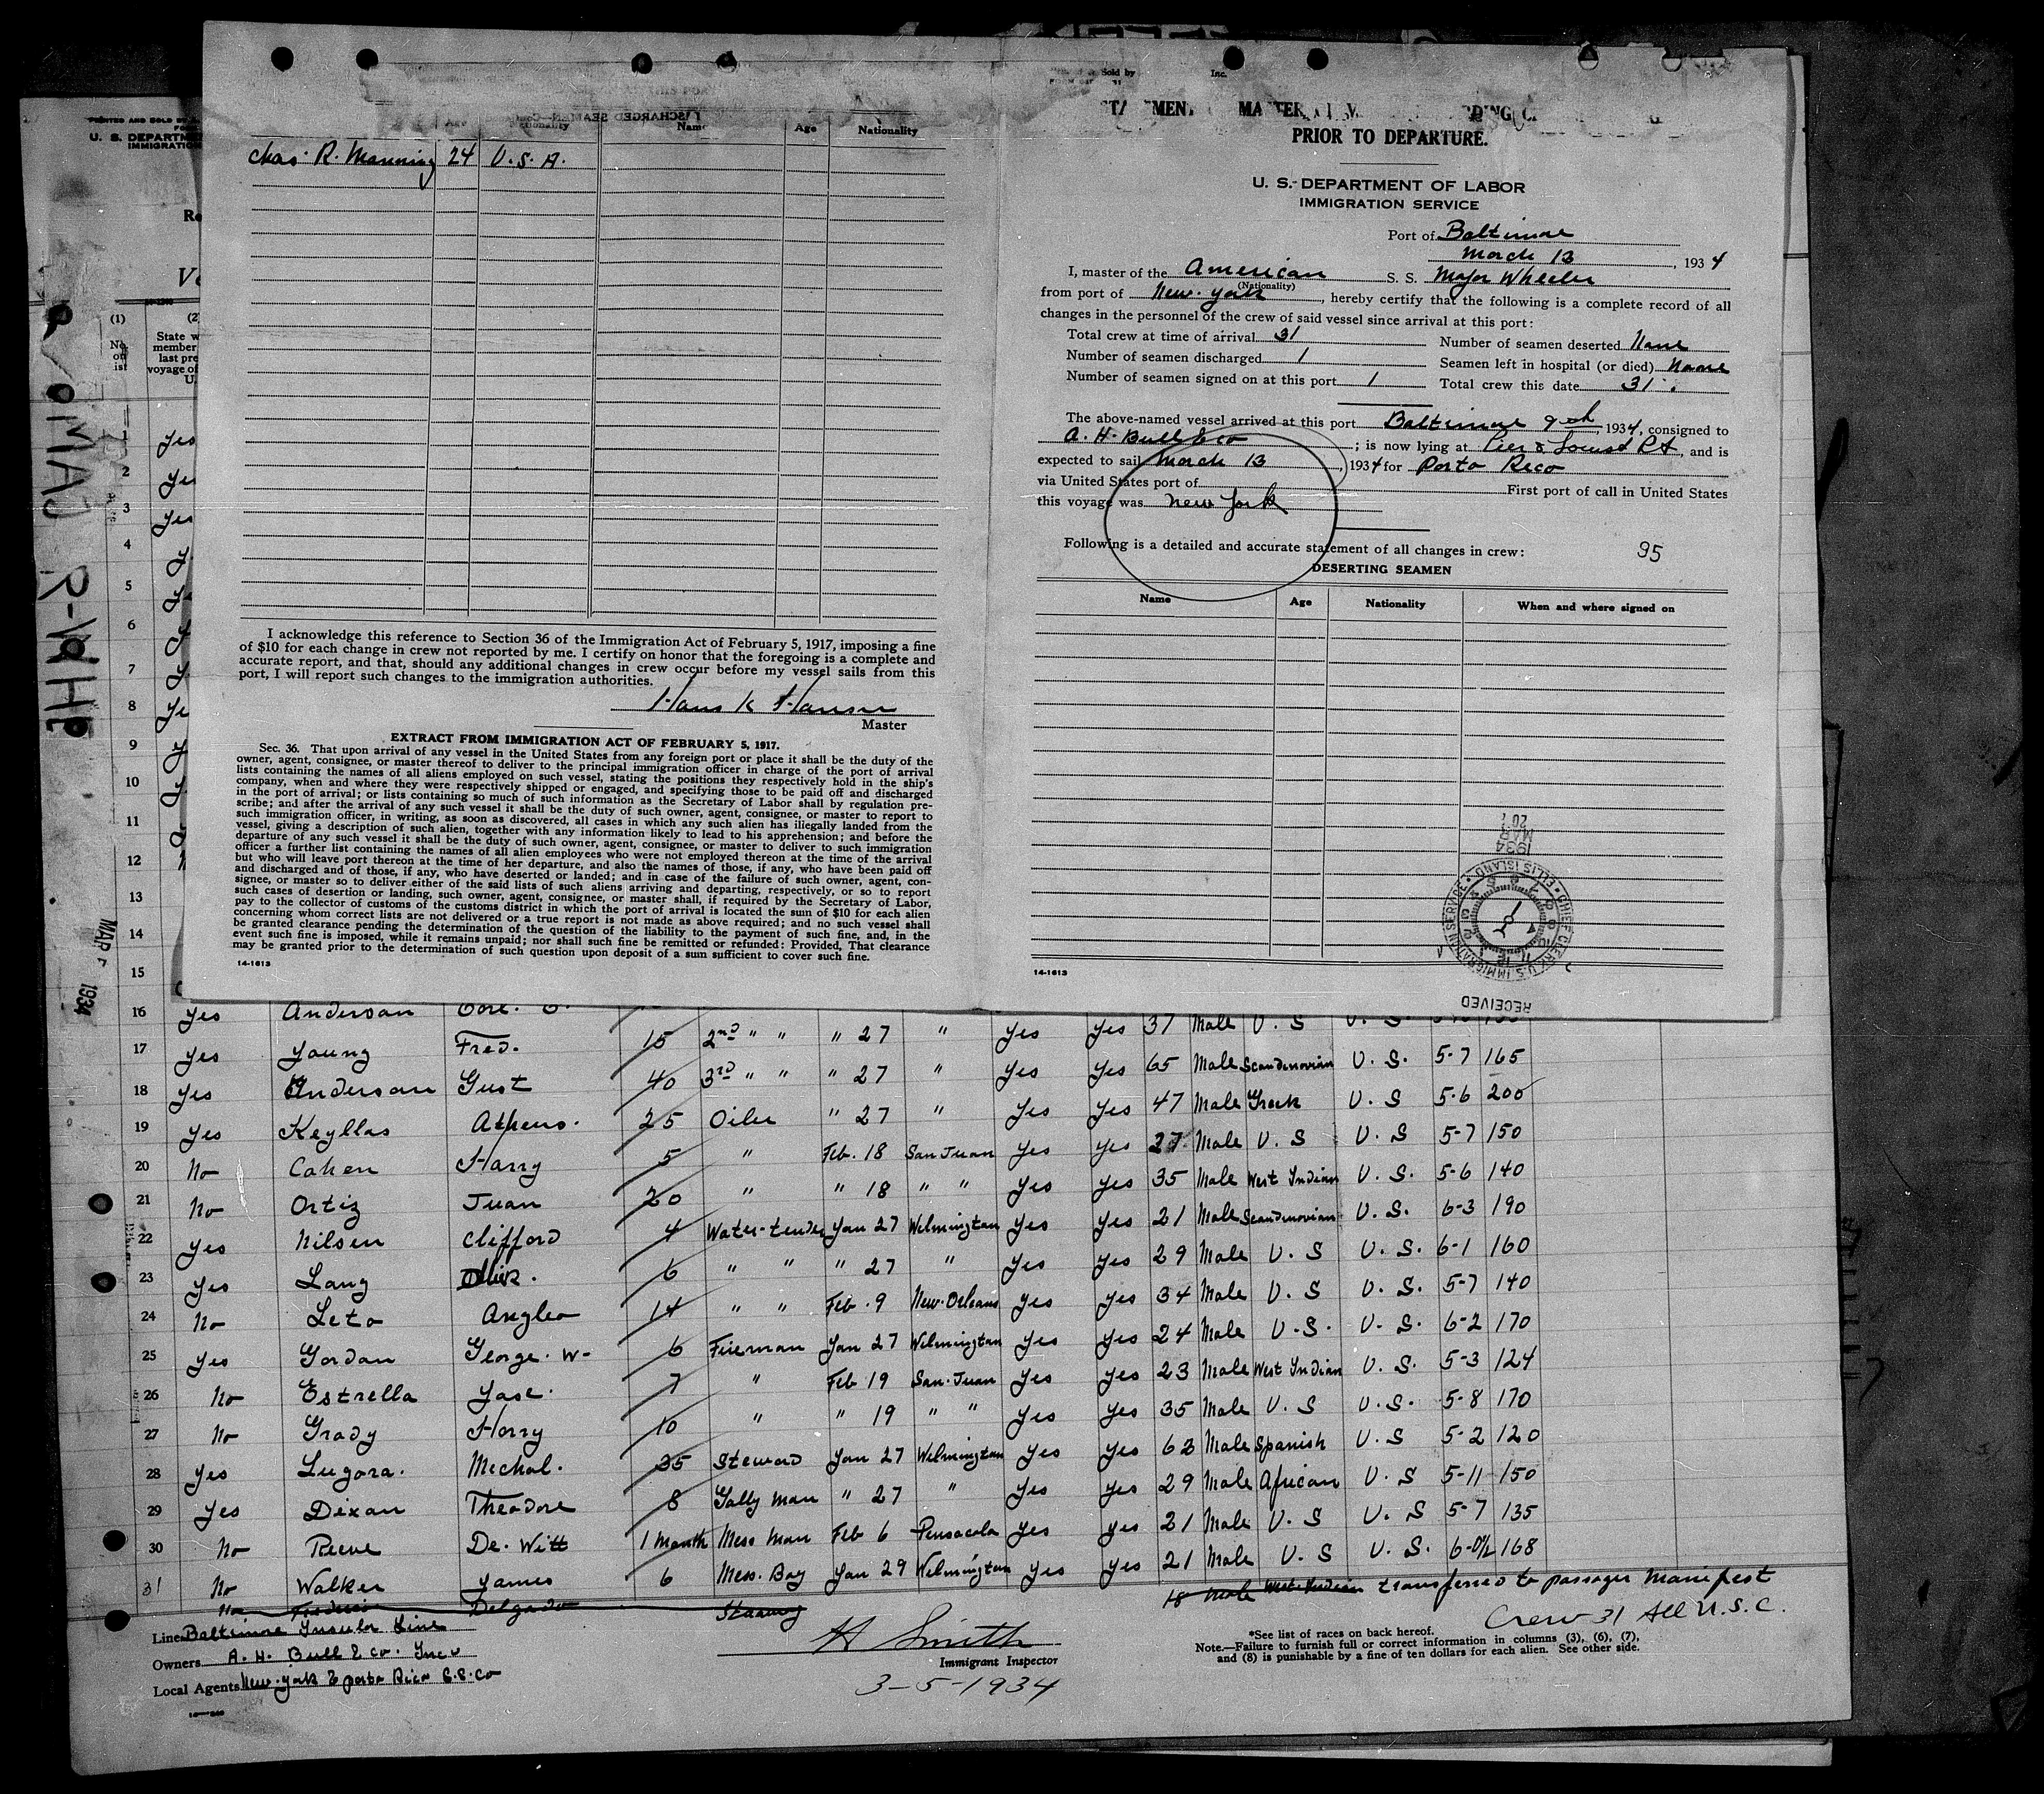 Name Age Nationality
Chas. R. Manning 24 U.S.A.
I acknowledge this reference to Section 36 of the Immigration Act of February 5, 1917, imposing a fine
of $10 for each change in crew not reported by me. I certify on honor that the foregoing is a complete and
accurate report, and that, should any additional changes in crew occur before my vessel sails from this
port, I will report such changes to the immigration authorities.
Hans K Hansen
Master
EXTRACT FROM IMMIGRATION ACT OF FEBRUARY 5, 1917.
Sec. 36. That upon arrival of any vessel in the United States from any foreign port or place it shall be the duty of the
owner, agent, consignee, or master thereof to deliver to the principal immigration officer in charge of the port of arrival
lists containing the names of all aliens employed on such vessel, stating the positions they respectively hold in the ship's
company, when and where they were respectively shipped or engaged, and specifying those to be paid off and discharged
in the port of arrival; or lists containing so much of such information as the Secretary of Labor shall by regulation pre-
scribe; and after the arrival of any such vessel it shall be the duty of such owner, agent, consignee, or master to report to
such immigration officer, in writing, as soon as discovered, all cases in which any such alien has illegally landed from the
vessel, giving a description of such alien, together with any information likely to lead to his apprehension; and before the
departure of any such vessel it shall be the duty of such owner, agent, consignee, or master to deliver to such immigration
officer a further list containing the names of all alien employees who were not employed thereon at the time of the arrival
but who will leave port thereon at the time of her departure, and also the names of those, if any, who have been paid off
and discharged and of those, if any, who have deserted or landed; and in case of the failure of such owner, agent, con-
signee, or master so to deliver either of the said lists of such aliens arriving and departing, respectively, or so to report
such cases of desertion or landing, such owner, agent, consignee, or master shall, if required by the Secretary of Labor,
pay to the collector of customs of the customs district in which the port of arrival is located the sum of $10 for each alien
concerning whom correct lists are not delivered or a true report is not made as above required; and no such vessel shall
be granted clearance pending the determination of the question of the liability to the payment of such fine, and, in the
event such fine is imposed, while it remains unpaid; nor shall such fine be remitted or refunded: Provided, That clearance
may be granted prior to the determination of such question upon deposit of a sum sufficient to cover such fine.
14-1613
Sold by Inc.
PRIOR TO DEPARTURE.
U. S. DEPARTMENT OF LABOR
IMMIGRATION SERVICE
Port of Baltimore
March 13, 1934
I, master of the American S. S. Major Wheeler
(Nationality)
from port of New York, hereby certify that the following is a complete record of all
changes in the personnel of the crew of said vessel since arrival at this port:
Total crew at time of arrival 31 Number of seamen deserted None
Number of seamen discharged 1 Seamen left in hospital (or died) None
Number of seamen signed on at this port 1 Total crew this date 31
The above-named vessel arrived at this port Baltimore 9th, 1934, consigned to
A. H. Bull & Co; is now lying at Pier 8 Locust Pt, and is
expected to sail March 13, 1934 for Porto Reco
via United States port of First port of call in United States
this voyage was New York
Following is a detailed and accurate statement of all changes in crew: 95
DESERTING SEAMEN
Name Age Nationality When and where signed on
1934
MAR
20
CHIEF CLERK U.S. IMMIGRATION SERVICE ELLIS ISLAND
RECEIVED
14-1613
U. S. DEPARTME
IMMIGRATION
(1) (2
No. on list
State w
member
last pre
voyage of
U.
MAJOR-WHE
MAR 1934
1 Yes
2 Ye
3 Yes
4
5
6
7
8 Ye
9
10
11
12
13
14
15
16 Yes Anderson
17 Yes Young Fred. 15 2nd " " " 27 " Yes Yes 37 Male U. S U. S.
18 Yes Anderson Gust 40 3rd " " " 27 " Yes Yes 65 Male Scandinovian U. S. 5-7 165
19 Yes Keyllas Athens. 25 Oiler " 27 " Yes Yes 47 Male Greek U. S 5-6 200
20 No Cohen Harry 5 " Feb. 18 San Juan Yes Yes 27 Male U. S U. S 5-7 150
21 No Ortiz Juan 20 " " 18 " " Yes Yes 35 Male West Indian U. S. 5-6 140
22 Yes Nilsen Clifford 4 Water-tender Jan 27 Wilmington Yes Yes 21 Male Scandinovian U. S. 6-3 190
23 Yes Lang 6 " " " 27 " Yes Yes 29 Male U. S U. S. 6-1 160
24 No Leto Angleo 14 " " Feb. 9 New-Orleans Yes Yes 34 Male U. S U. S. 5-7 140
25 Yes Gordon George. W- 6 Fireman Jan 27 Wilmington Yes Yes 24 Male U. S. U. S. 6-2 170
26 No Estrella Jose. 7 " Feb 19 San-Juan Yes Yes 23 Male West Indian U. S. 5-3 124
27 No Grady Harry 10 " " 19 " " Yes Yes 35 Male U. S U. S. 5-8 170
28 Yes Lugora. Mechal. 35 Steward Jan 27 Wilmington Yes Yes 62 Male Spanish U. S 5-2 120
29 Yes Dixon Theodore 8 Gally man " 27 " Yes Yes 29 Male African U. S 5-11 150
30 No Reeve De. Witt 1 month Mess man Feb 6 Pensacola Yes Yes 21 Male U. S U. S 5-7 135
31 No Walker James 6 Mess. Boy Jan 29 Wilmington Yes Yes 21 Male U. S U. S. 6-0½ 168
No Delgado 18 Male West Indian transferred to passager Manifest
Crew 31 All U.S.C.
Line Baltimore Insular Line
Owners A. H. Bull & Co. Inc
Local Agents New-York & Porto Rico S.S. Co
H Smith
Immigrant Inspector
3-5-1934
*See list of races on back hereof.
Note.—Failure to furnish full or correct information in columns (3), (6), (7),
and (8) is punishable by a fine of ten dollars for each alien. See other side.